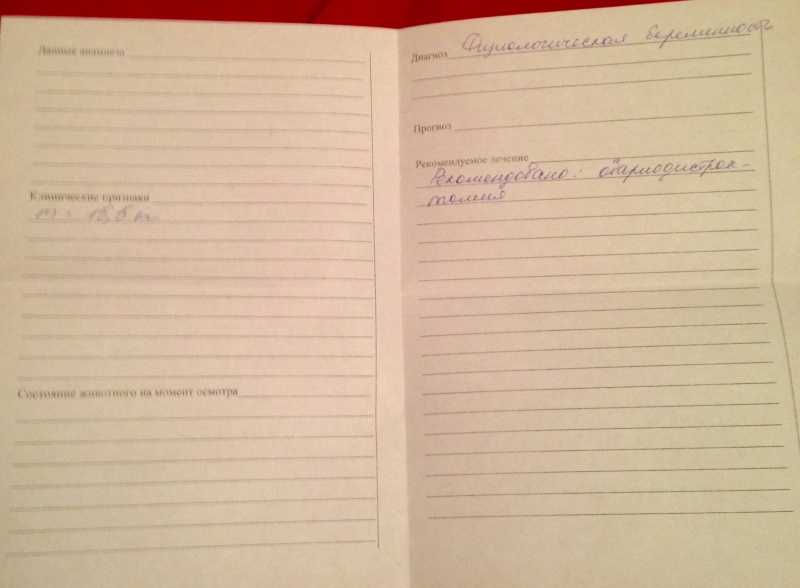 Данные анамнеза
Клинические признаки
m = 18,8 кг
Состояние животного на момент осмотра
Диагноз Физиологическая беременность
Прогноз
Рекомендуемое лечение
Рекомендовано: овариодистрок-
томия